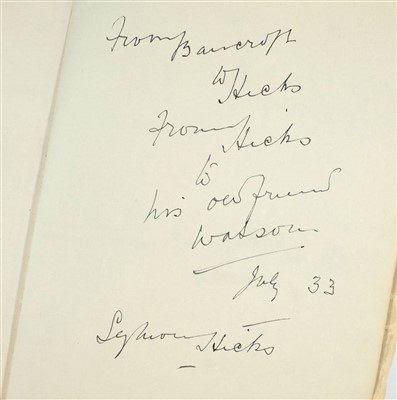 From Bancroft
to
Hicks
From Hicks
to
his old friend
Watson
July 33
Seymour Hicks